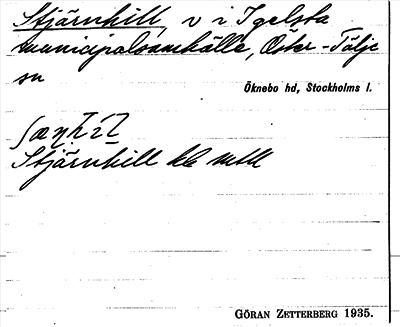 Stjärnhill, v i Igelsta
municipalsamhälle, Öster-Tälje
sn
Öknebo hd, Stockholms l.
Stjärnhill
GÖRAN ZETTERBERG 1935.